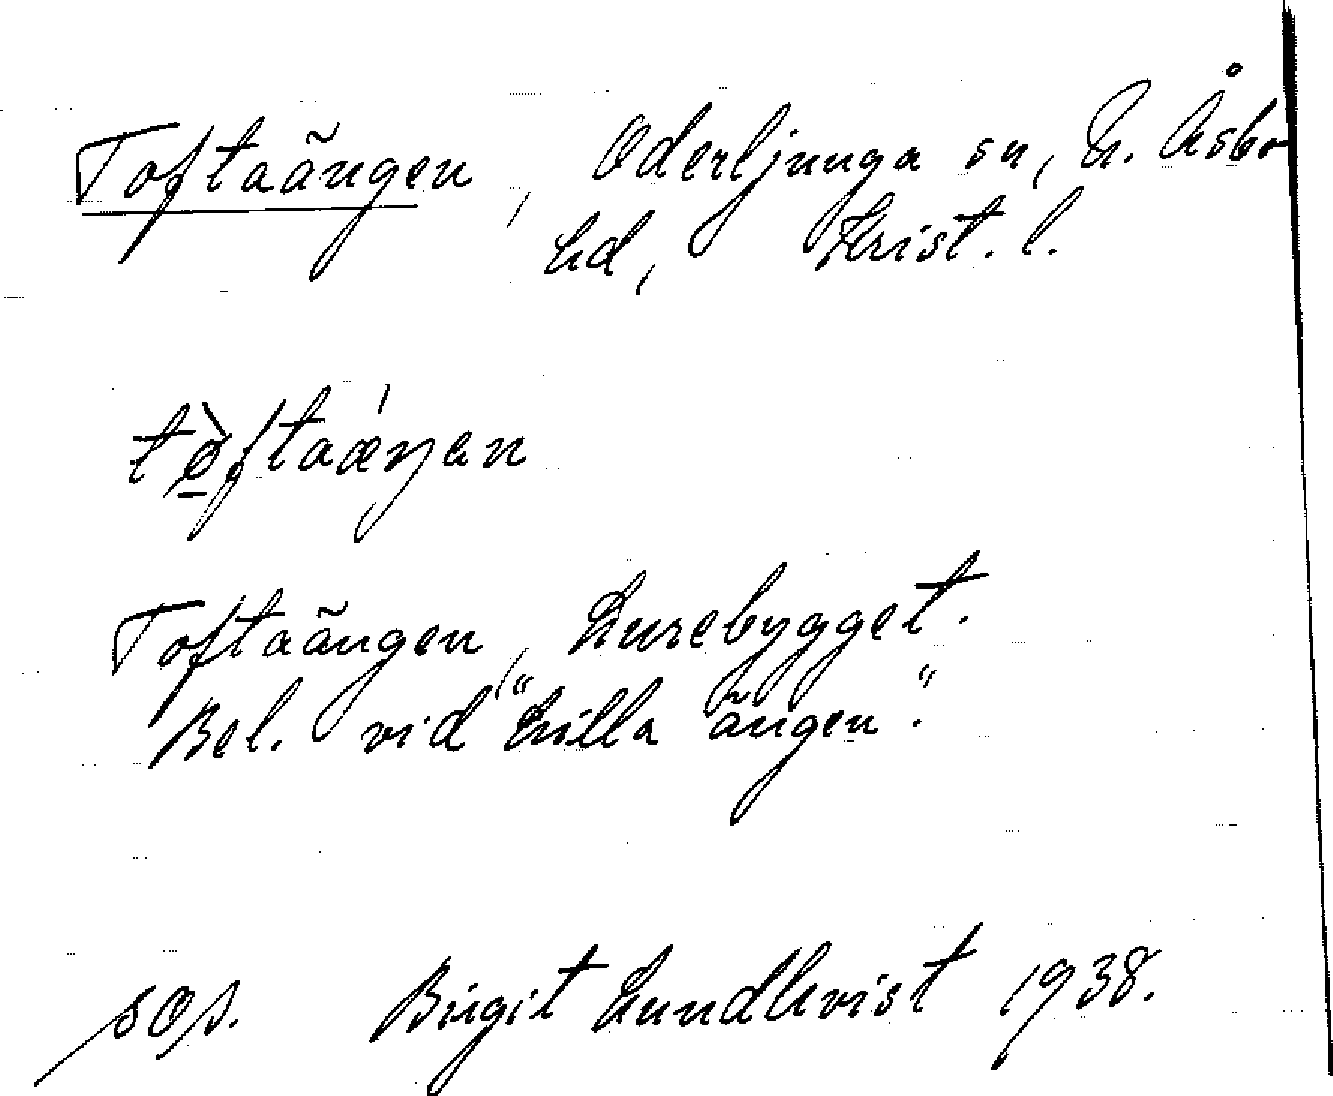 Toftaängen, Oderljunga sn, N. Åsbo
hd, Krist. l.
tò̱ftaáŋen
Toftaängen, Lurebygget.
Bel. vid "Lilla ängen".
sos. Birgit Lundkvist 1938.